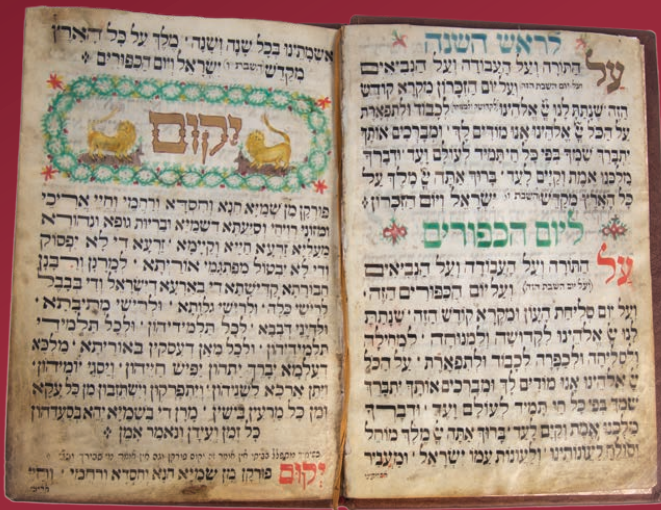 לראש השנה
על התורה ועל העבודה ועל הנביאים
ועל יום השבת הזה ועל יום הזכרון מקרא קודש
הזה שנתת לנו אלהינו לכבוד ולתפארת
על הכל אלהינו אנו מודים לך ומברכים אותך
יתברך שמך בפי כל חי תמיד לעולם ועד ודברך
מלכנו אמת וקיים לעד ברוך אתה מלך על
כל הארץ מקדש ישראל ויום הזכרון
ליום הכפורים
על התורה ועל העבודה ועל הנביאים
ועל יום השבת הזה ועל יום הכפורים הזה
ועל יום סליחת העון ומקרא קודש הזה שנתת
לנו אלהינו לקדושה ולמנוחה למחילה
ולסליחה ולכפרה לכבוד ולתפארת על הכל
אלהינו אנו מודים לך ומברכים אותך יתברך
שמך בפי כל חי תמיד לעולם ועד ודברך
מלכנו אמת וקים לעד ברוך אתה מלך מוחל
וסולח לעונותינו ולעונות עמו ישראל ומעביר
אשמתינו בכל שנה ושנה מלך על כל הארץ
מקדש ישראל ויום הכפורים
יקום
פורקן מן שמיא חנא וחסדא ורחמי וחיי אריכי
ומזוני רויחי וסיעתא דשמיא ובריות גופא ונהורא
מעליא זרעא חייא וקיימא זרעא די לא יפסוק
ודי לא יבטול מפתגמי אורייתא למרנן ורבנן
חבורתא קדישתא די בארעא דישראל ודי בבבל
לרישי כלה ולרישי גלותא ולרישי מתיבתא
ולדיני דבבא לכל תלמידיהון ולכל תלמידי
תלמידיהון ולכל מאן דעסקין באוריתא מלכא
דעלמא יברך יתהון יפיש חייהון ויסגי יומיהון
ויתן ארכא לשניהון ויתפרקון וישתזבון מן כל עקא
ומן כל מרעין בישין מרן די בשמיא יהא בסעדהון
כל זמן ועידן ונאמר אמן
יקום פורקן מן שמיא חנא וחסדא ורחמי וחיי